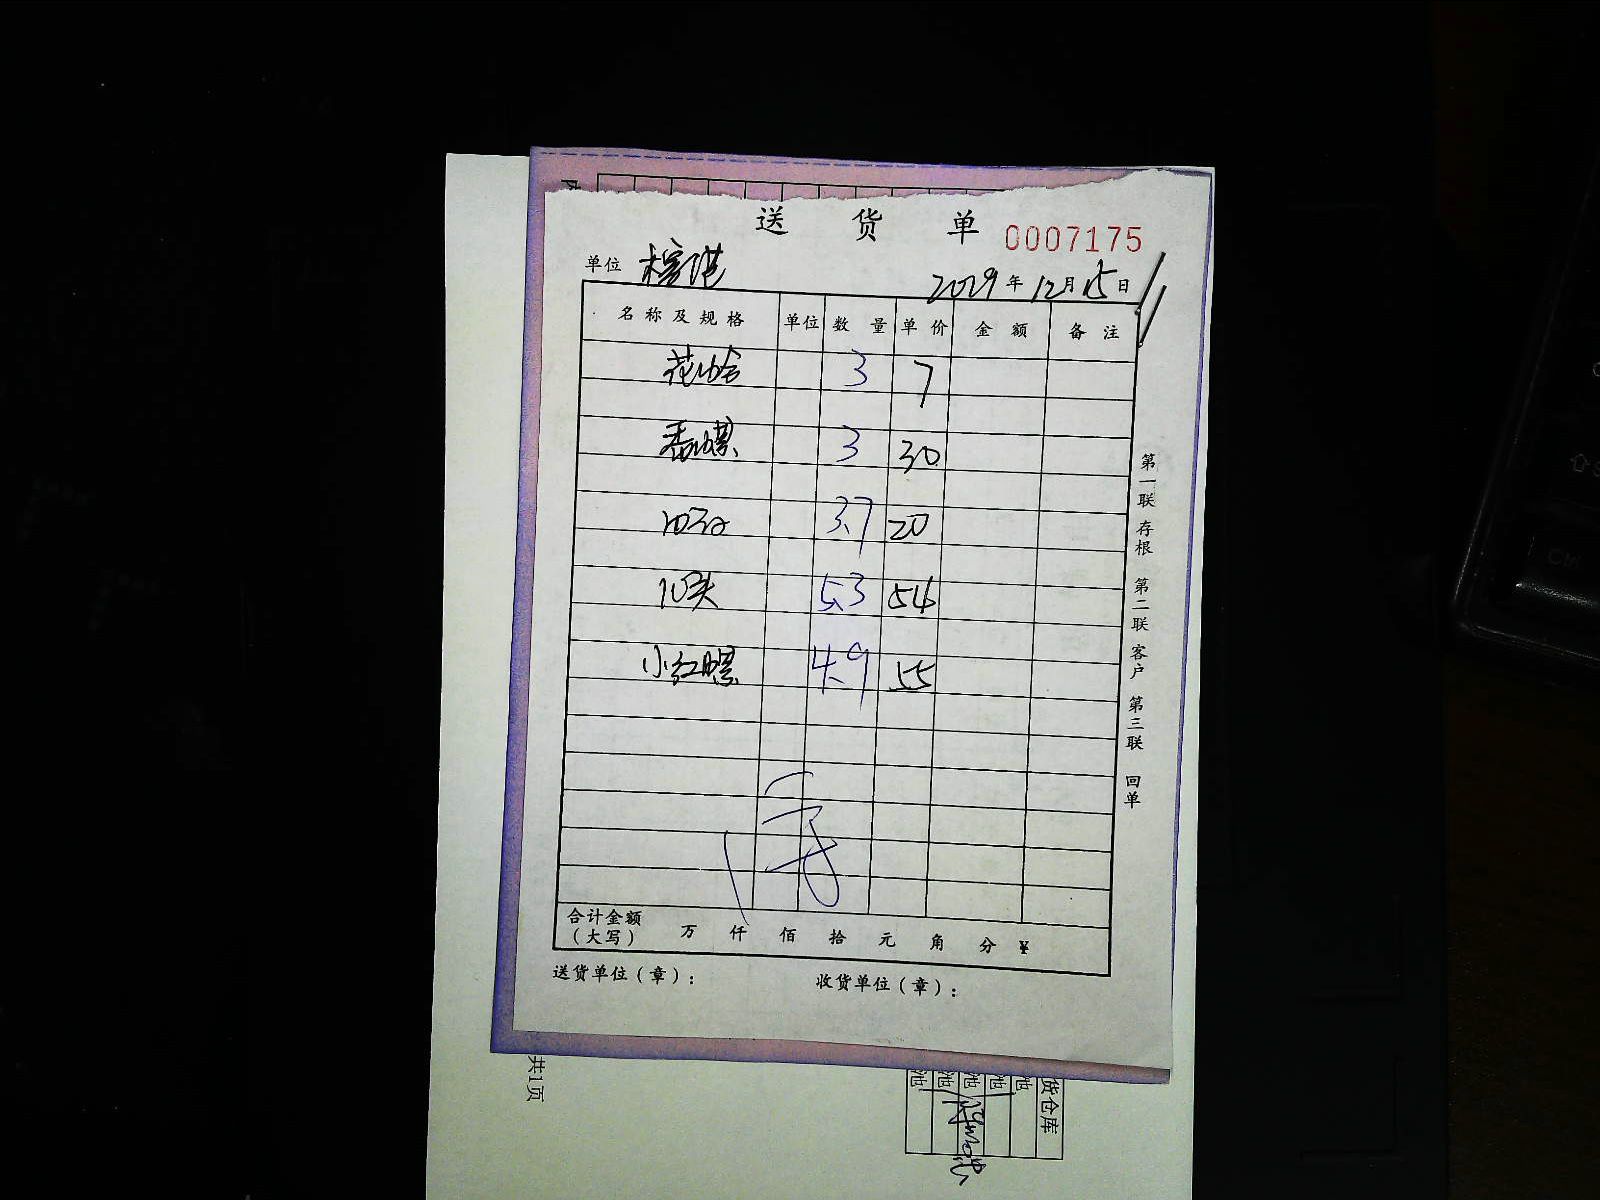 送货单
0007175
单位
2029年12月15日
名称及规格 单位 数量 单价 金额 备注
花蛤 3 7
香螺 3 30
3.7 20
10头 5.3 54
小红螺 4.9 55
合计金额
(大写) 万 仟 佰 拾 元 角 分 ¥
送货单位(章): 收货单位(章):
第一联 存根 第二联 客户 第三联 回单
共1页
货仓库